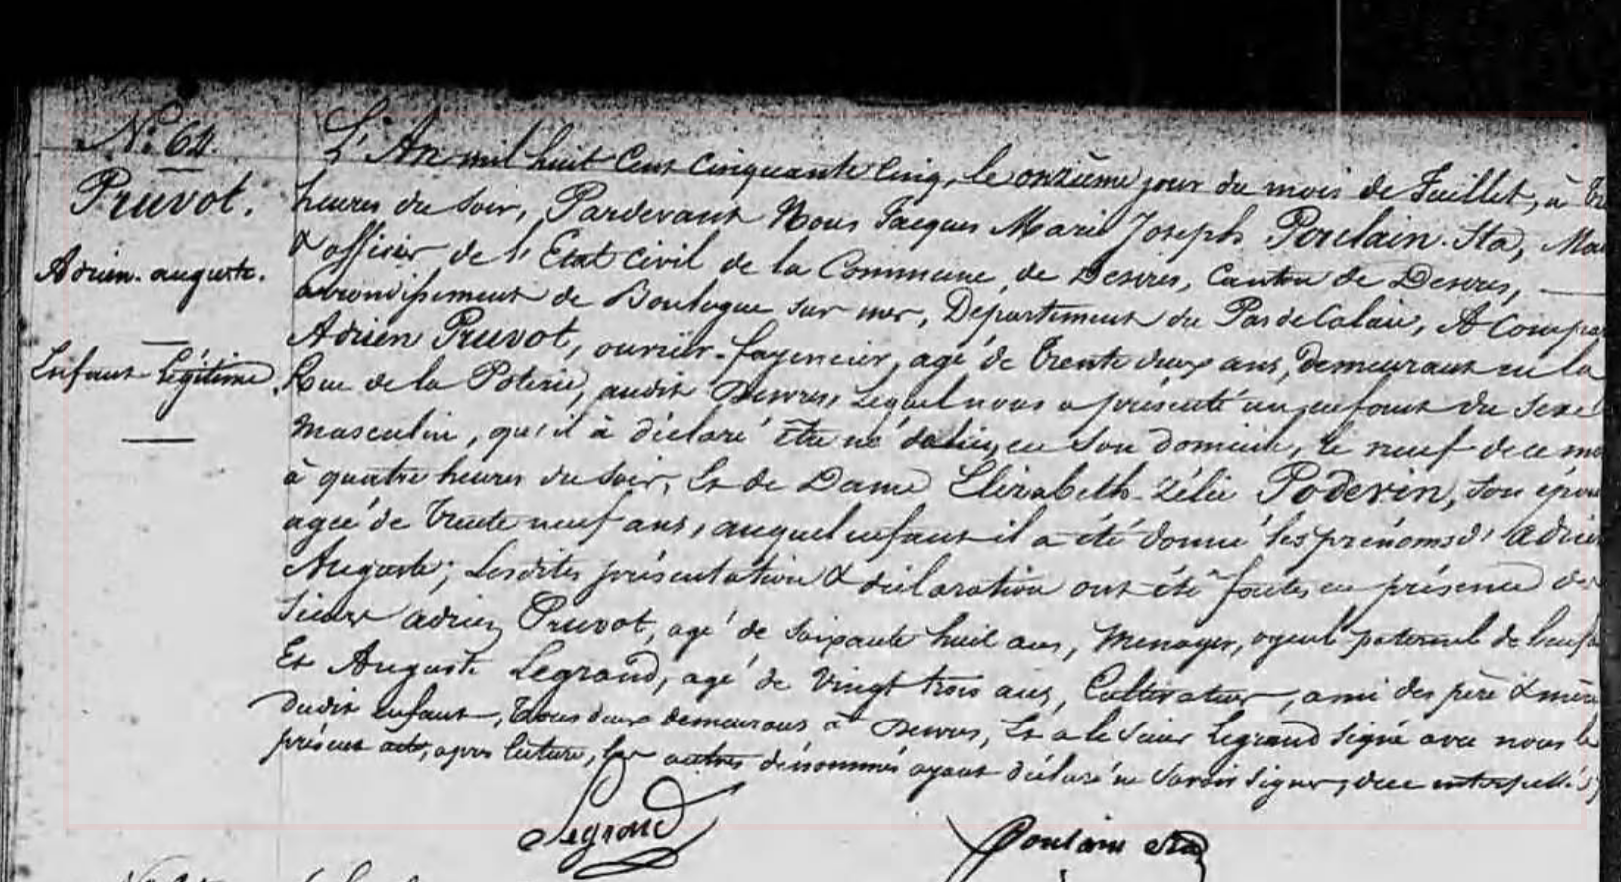 N.º 64.
Pruvot.
Adrien. auguste.
Enfant Légitime.
L'An mil huit Cent Cinquante Cinq, le onzième jour du mois de Juillet, à
heures du soir, Pardevant Nous Jacques Marie Joseph Poulain. Sta,
& officier de l'Etat Civil de la Commune de Desvres, Canton de Desvres,
arrondissement de Boulogne sur mer, Département du Pas de Calais, A Compa
Adrien Pruvot, ouvrier-fayencier, agé de trente deux ans, demeurant en la
Rue de la Poterie, audit Desvres, Lequel nous a présenté un enfant du Sexe
Masculin, qu'il à déclaré être né de lui, en Son domicile, le neuf de ce mo
à quatre heures du soir, Et de Dame Elizabeth-Zélie Podevin, son épou
agée de trente neuf ans, auquel enfant il a été donné les prénoms d' Adrien
Auguste; Lesdites présentation & déclaration ont été faites en présence de
Sieur adrien Pruvot, agé de soixante huit ans, Menager, ayeul paternel de l'enfa
Et Auguste Legrand, agé de Vingt trois ans, Cultivateur, ami des père & mère
dudit enfant, tous deux demeurans à Desvres, Et a le Sieur Legrand Signé avec nous le
présent acte, après lecture, les autres dénommés ayant déclaré ne Savoir Signer, de ce interpellés
Legrand
Poulain Sta